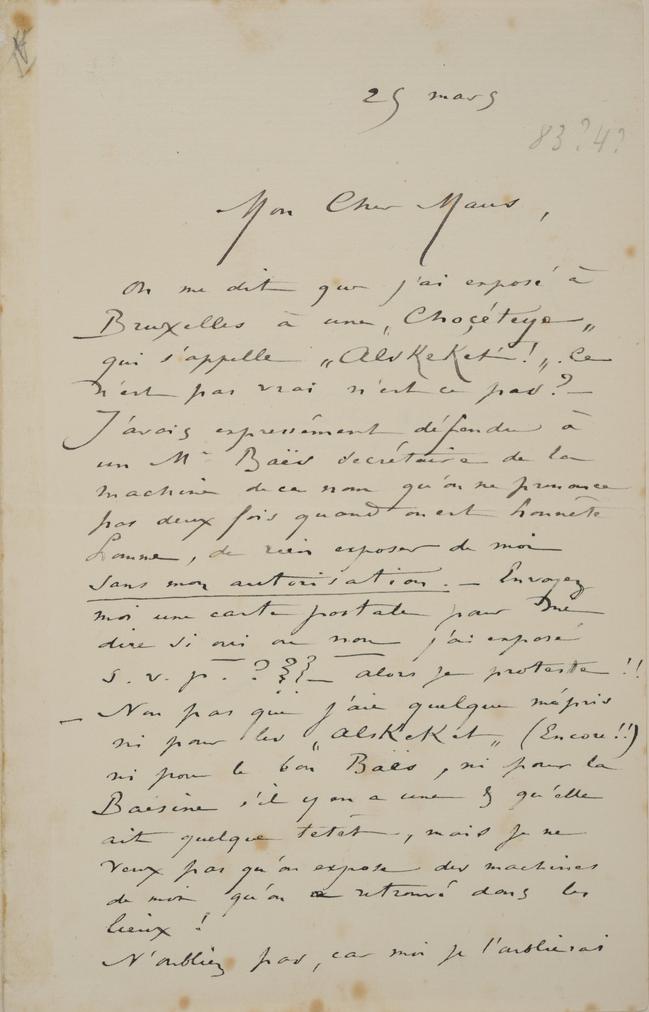 25 mars
83? 4?
Mon Cher Maus,
On me dit que j'ai exposé à
Bruxelles à une „Choçéteye„
qui s'appelle „AlsKeKet!„. Ce
n'est pas vrai n'est ce pas? —
J'avais expressément défendu à
un Mr Baës secrétaire de la
machine de ce nom qu'on ne prononce
pas deux fois quand on est honnête
homme, de rien exposer de moi
sans mon autorisation. — Envoyez
moi une carte postale pour me
dire si oui ou non j'ai exposé
s. v. p. ???? — alors je proteste!!
— Non pas que j'aie quelque mépris
ni pour les „AlsKeKet„ (Encore!!)
ni pour le bon Baës, ni pour la
Baësine s'il y en a une & qu'elle
ait quelque tétét, mais je ne
veux pas qu'on expose des machines
de moi qu'on a retrouvé dans les
lieux!
N'oubliez pas, car moi je l'oublierai